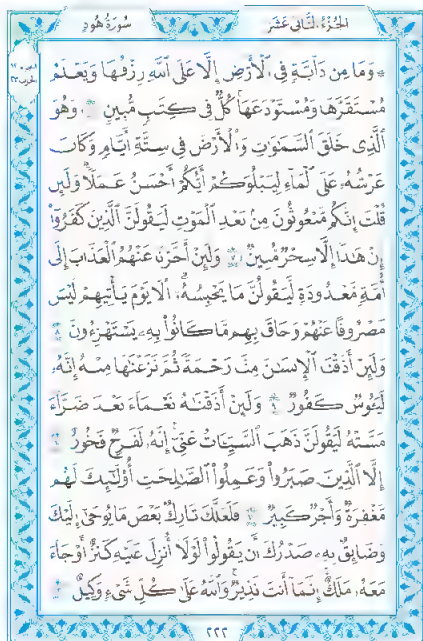 الجُزْءُ الثَّانِي عَشَرَ
سُورَةُ هُودٍ
وَمَا مِن دَآبَّةٍ فِي ٱلْأَرْضِ إِلَّا عَلَى ٱللَّهِ رِزْقُهَا وَيَعْلَمُ
مُسْتَقَرَّهَا وَمُسْتَوْدَعَهَا كُلٌّ فِي كِتَٰبٍ مُّبِينٍ ٦ وَهُوَ
ٱلَّذِي خَلَقَ ٱلسَّمَٰوَٰتِ وَٱلْأَرْضَ فِي سِتَّةِ أَيَّامٍ وَكَانَ
عَرْشُهُۥ عَلَى ٱلْمَآءِ لِيَبْلُوَكُمْ أَيُّكُمْ أَحْسَنُ عَمَلًا وَلَئِن
قُلْتَ إِنَّكُم مَّبْعُوثُونَ مِنۢ بَعْدِ ٱلْمَوْتِ لَيَقُولَنَّ ٱلَّذِينَ كَفَرُوٓا۟
إِنْ هَٰذَآ إِلَّا سِحْرٌ مُّبِينٌ ٧ وَلَئِنْ أَخَّرْنَا عَنْهُمُ ٱلْعَذَابَ إِلَىٰٓ
أُمَّةٍ مَّعْدُودَةٍ لَّيَقُولُنَّ مَا يَحْبِسُهُۥٓ أَلَا يَوْمَ يَأْتِيهِمْ لَيْسَ
مَصْرُوفًا عَنْهُمْ وَحَاقَ بِهِم مَّا كَانُوا۟ بِهِۦ يَسْتَهْزِءُونَ ٨
وَلَئِنْ أَذَقْنَا ٱلْإِنسَٰنَ مِنَّا رَحْمَةً ثُمَّ نَزَعْنَٰهَا مِنْهُ إِنَّهُۥ
لَيَـُٔوسٌ كَفُورٌ ٩ وَلَئِنْ أَذَقْنَٰهُ نَعْمَآءَ بَعْدَ ضَرَّآءَ
مَسَّتْهُ لَيَقُولَنَّ ذَهَبَ ٱلسَّيِّـَٔاتُ عَنِّيٓ إِنَّهُۥ لَفَرِحٌ فَخُورٌ ١٠
إِلَّا ٱلَّذِينَ صَبَرُوا۟ وَعَمِلُوا۟ ٱلصَّٰلِحَٰتِ أُو۟لَٰٓئِكَ لَهُم
مَّغْفِرَةٌ وَأَجْرٌ كَبِيرٌ ١١ فَلَعَلَّكَ تَارِكٌۢ بَعْضَ مَا يُوحَىٰٓ إِلَيْكَ
وَضَآئِقٌۢ بِهِۦ صَدْرُكَ أَن يَقُولُوا۟ لَوْلَآ أُنزِلَ عَلَيْهِ كَنزٌ أَوْ جَآءَ
مَعَهُۥ مَلَكٌ إِنَّمَآ أَنتَ نَذِيرٌ وَٱللَّهُ عَلَىٰ كُلِّ شَىْءٍ وَكِيلٌ ١٢
٢٢٢